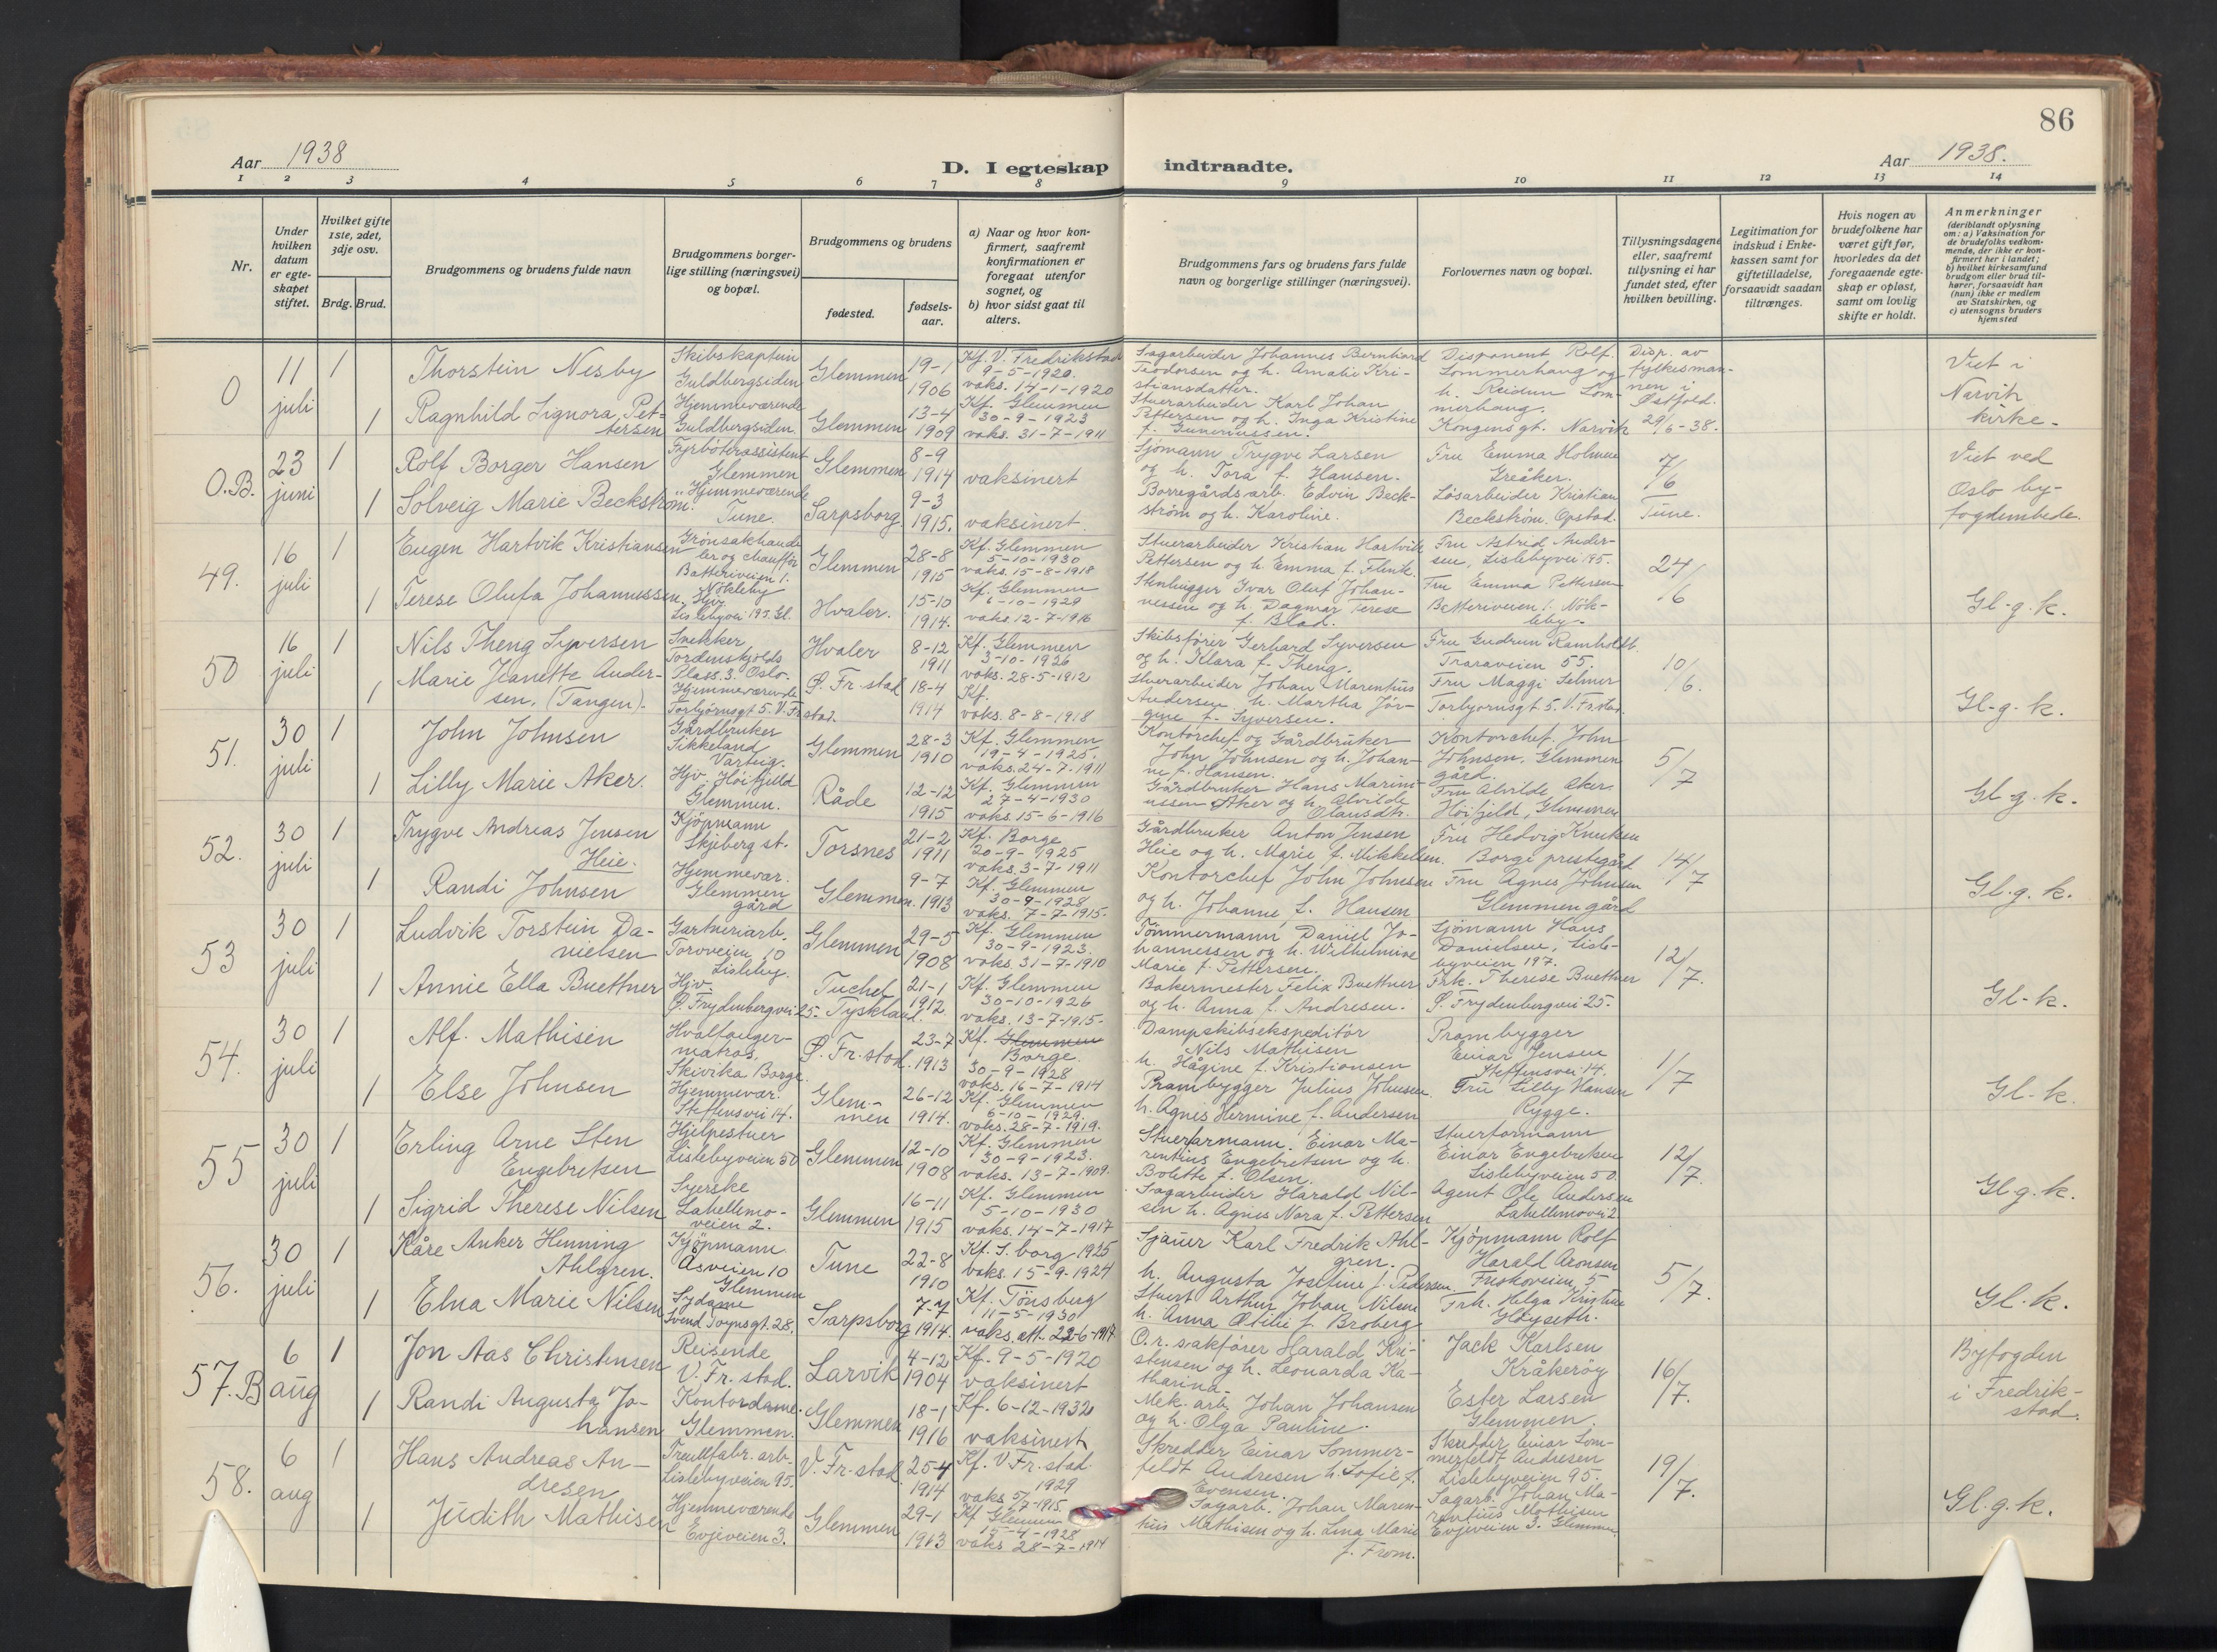 86
Aar 1938
D. I egteskap indtraadte.
Aar 1938.
1 2 3 4 5 6 7 8 9 10 11 12 13 14
Nr.
Under hvilken datum er egteskapet stiftet.
Hvilket gifte 1ste, 2det, 3dje osv.
Brdg. Brud.
Brudgommens og brudens fulde navn
Brudgommens borgerlige stilling (næringsvei) og bopæl.
Brudgommens og brudens
fødested.
fødselsaar.
a) Naar og hvor konfirmert, saafremt konfirmationen er foregaat utenfor sognet, og
b) hvor sidst gaat til alters.
Brudgommens fars og brudens fars fulde navn og borgerlige stillinger (næringsvei).
Forlovernes navn og bopæl.
Tillysningsdagene eller, saafremt tillysning ei har fundet sted, efter hvilken bevilling.
Legitimation for indskud i Enkekassen samt for giftetilladelse, forsaavidt saadan tiltrænges.
Hvis nogen av brudefolkene har været gift før, hvorledes da det foregaaende egteskap er opløst, samt om lovlig skifte er holdt.
Anmerkninger (deriblandt oplysning om: a) Vaksination for de brudefolks vedkommende, der ikke er konfirmert her i landet; b) hvilket kirkesamfund brudgom eller brud tilhører, forsaavidt han (hun) ikke er medlem av Statskirken, og c) utensogns bruders hjemsted
0
11 juli
1
Thorstein Nesby
Skibskaptein
Guldbergsiden
Glemmen
19-1
1906
Kf. V. Fredrikstad
9-5-1920.
vaks. 14-1-1920
Sagarbeider Johannes Bernhard
Teodorsen og h. Amalie Kri-
stiansdatter.
Disponent Rolf
Sommerhaug og
h. Reidun Som-
merhaug.
Kongensgt. Narvik
Disp. av
fylkesman-
nen i
Østfold.
29/6-38.
Viet i
Narvik
kirke.
1
Ragnhild Signora Pet-
tersen
Hjemmeværende
Guldbergsiden.
Glemmen
13-4
1909
Kf. Glemmen
30-9-1923
vaks. 31-7-1911
Stuerarbeider Karl Johan
Pettersen og h. Inga Kristine
f. Guneriussen.
0.B.
23 juni
1
Rolf Borger Hansen
Fyrbøterassistent
Glemmen
Glemmen
8-9
1914
vaksinert
Sjømann Trygve Larsen
og h. Tora f. Hansen.
Fru Emma Holmen
Greåker.
7/6
Tune.
Viet ved
Oslo by-
fogdembede.
1
Solveig Marie Beckstrøm.
Hjemmeværende
Tune.
Sarpsborg
9-3
1915.
vaksinert.
Borregårdsarb. Edvin Beck-
strøm og h. Karoline.
Løsarbeider Kristian
Beckstrøm. Opstad.
49.
16 juli
1
Eugen Hartvik Kristiansen
Grønsakhand-
ler og chauffør
Batteriveien 1.
Nøkleby
Glemmen
28-8
1915
Kf. Glemmen
5-10-1930
vaks. 15-8-1918
Stuerarbeider Kristian Hartvik
Pettersen og h. Emma f. Flenk.
Fru Astrid Ander-
sen, Lislebyvei 195.
24/6
Gl-g.k.
1
Terese Olufa Johannessen
Hjv.
Lislebyvei 195. Gl.
Hvaler.
15-10
1914.
Kf. Glemmen
6-10-1929
vaks 12-7-1916
Stenhugger Ivar Oluf Johan-
nessen og h. Dagmar Terese
f. Blad.
Fru Emma Pettersen
Batteriveien 1. Nøk-
leby-
50
16 juli
1
Nils Theng Syversen
Snekker
Tordenskjolds
Plass 3. Oslo.
Hvaler
8-12
1911
Kf. Glemmen
3-10-1926
vaks. 28-5-1912
Skibsfører Gerhard Syversen
og h. Klara f. Theng.
Fru Gudrun Ramholdt.
Traraveien 55.
10/6.
Gl-g.k.
1
Marie Jeanette Ander-
sen. (Tangen).
Hjemmeværende
Torbjørnsgt 5. V. Fr. stad.
Ø. Fr. stad
18-4
1914
Kf.
vaks. 8-8-1918
Stuerarbeider Johan Marentius
Andersen, h. Martha Jør-
gine f. Syversen.
Fru Maggi Selmer
Torbjørnsgt 5. V. Fr. stad.
51.
30 juli
1
John Johnsen
Gårdbruker
Tikkeland
Varteig.
Glemmen
28-3
1910
Kf. Glemmen
19-4-1925.
vaks. 24-7-1911
Kontorchef og Gårdbruker
John Johnsen og h. Johan-
ne f. Hansen.
Kontorchef. John
Johnsen. Glemmen
gård.
5/7
Gl g.k.
1
Lilly Marie Aker.
Hjv. Höifjeld
Glemmen.
Råde
12-12
1915
Kf. Glemmen
27-4-1930
vaks. 15-6-1916
Gårdbruker Hans Marini-
ussen Aker og h. Alvilde
Olausdtr.
Fru Alvilde Aker
Höifjeld, Glemmen
52.
30 juli
1
Trygve Andreas Jensen
Heie.
Kjöpmann
Skjeberg st.
Torsnes
21-2
1911
Kf. Borge
20-9-1925
vaks. 3-7-1911
Gårdbruker Anton Jensen
Heie og h. Marie f. Mikkelsen.
Fru Hedvig Knutsen
Borge prestegård
14/7
Gl.g.k.
1
Randi Johnsen
Hjemmevær.
Glemmen
gård
Glemmen.
9-7
1913
Kf. Glemmen
30-9-1928
vaks. 7-7-1915.
Kontorchef John Johnsen
og h. Johanne f. Hansen
Fru Agnes Johnsen
Glemmen gård
53
30 juli
1
Ludvik Torstein Da-
nielsen
Gartneriarb.
Torvveien 10
Lisleby.
Glemmen
29-5
1908
Kf. Glemmen
30-9-1923.
vaks. 31-7-1910
Tömmermann Daniel Jo-
hannessen og h. Wilhelmine
Marie f. Pettersen.
Sjömann Hans
Danielsen, Lisle-
byveien 197.
12/7.
Gl-k.
1
Annie Ella Buettner
Hjv.
Ø. Frydenbergvei 25.
Tuchel
Tyskland.
21-1
1912
Kf. Glemmen
30-10-1926
vaks. 13-7-1915.
Bakermester Felix Buettner
og h. Anna f. Andresen.
Frk. Therese Buettner
Ø. Frydenbergvei 25.
54.
30 juli
1
Alf. Mathisen
Hvalfanger-
matros.
Skivika Borge.
Ø. Fr. stad.
23-7
1913
Kf. Glemmen
Borge.
30-9-1928
vaks. 16-7-1914
Dampskibsekspeditör
Nils Mathisen
h. Hågine f. Kristiansen
Prambygger
Einar Jensen
Steffensvei 14.
1/7
Gl-k.
1
Else Johnsen
Hjemmevær.
Steffensvei 14.
Glem-
men
26-12
1914.
Kf. Glemmen
6-10-1929.
vaks. 28-7-1919.
Prambygger Julius Johnsen
h. Agnes Hermine f. Andersen
Fru Lilly Hansen
Rygge.
55
30 juli
1
Erling Arne Sten
Engebretsen
Hjelpestuer
Lislebyveien 50
Glemmen
12-10
1908
Kf. Glemmen
30-9-1923.
vaks. 13-7-1909.
Stuerformann. Einar Ma-
rentius Engebretsen og h.
Bolette f. Olsen.
Stuerformann
Einar Engebretsen
Lislebyveien 50.
12/7.
Gl g.k.
1
Sigrid Therese Nilsen
Syerske
Lahellemo-
veien 2.
Glemmen
16-11
1915
Kf. Glemmen
5-10-1930
vaks. 14-7-1917
Sagarbeider Harald Nil-
sen h. Agnes Nora f. Pettersen
Agent Ole Andersen
Lahellemovei 2
56.
30 juli
1
Kåre Anker Henning
Ahlgren.
Kjöpmann
Åsveien 10
Glemmen
Tune
22-8
1910
Kf. S. borg 1925
vaks. 15-9-1924
Sjauer Karl Fredrik Ahl-
gren.
h. Augusta Josefine f. Pedersen
Kjöpmann Rolf
Harald Aronsen
Friskoveien, 5
5/7.
Gl.k.
1
Elna Marie Nilsen
Sydame
Svend Foynsgt. 28.
Sarpsborg
7-7
1914.
Kf. Tönsberg
11-5-1930
vaks. att. 22-6-1914
Stuert Arthur Johan Nilsen
h. Anna Otilie f. Broberg
Frk. Helga Kristine
Höyseth.
57.B
6 aug
1
Jon Aas Christensen
Reisende
V. Fr. stad.
Larvik
4-12
1904
Kf. 9-5-1920
vaksinert
O.r. sakfører Harald Kri-
stensen og h. Leonarda Ka-
tharina.
Jack Karlsen
Kråkeröy
16/7.
Byfogden
i Fredrik-
stad.
1
Randi Augusta Jo-
hansen
Kontordame.
Glemmen.
Glemmen
18-1
1916
Kf. 6-12-1932
vaksinert
Mek. arb. Johan Johansen
og h. Olga Pauline.
Ester Larsen
Glemmen.
58.
6 aug
1
Hans Andreas An-
dresen
Treullfabr. arb.
Lislebyveien 95.
V. Fr. stad
25-4
1914
Kf. V Fr. stad.
1929
vaks 5/7-1915.
Skredder Einar Sommer-
feldt Andresen h. Sofie f.
Evensen.
Skredder Einar Som-
merfeldt Andresen
Lislebyveien 95.
19/7.
Gl.g.k.
1
Judith Mathisen
Hjemmeværende
Evjeveien 3.
Glemmen
29-1
1913
Kf Glemmen
15-4-1928
vaks 28-7-1914
Sagarb. Johan Maren-
tius Mathisen og h. Lina Marie
f. From.
Sagarb. Johan Ma-
rentius Mathisen
Evjeveien 3. Glemmen